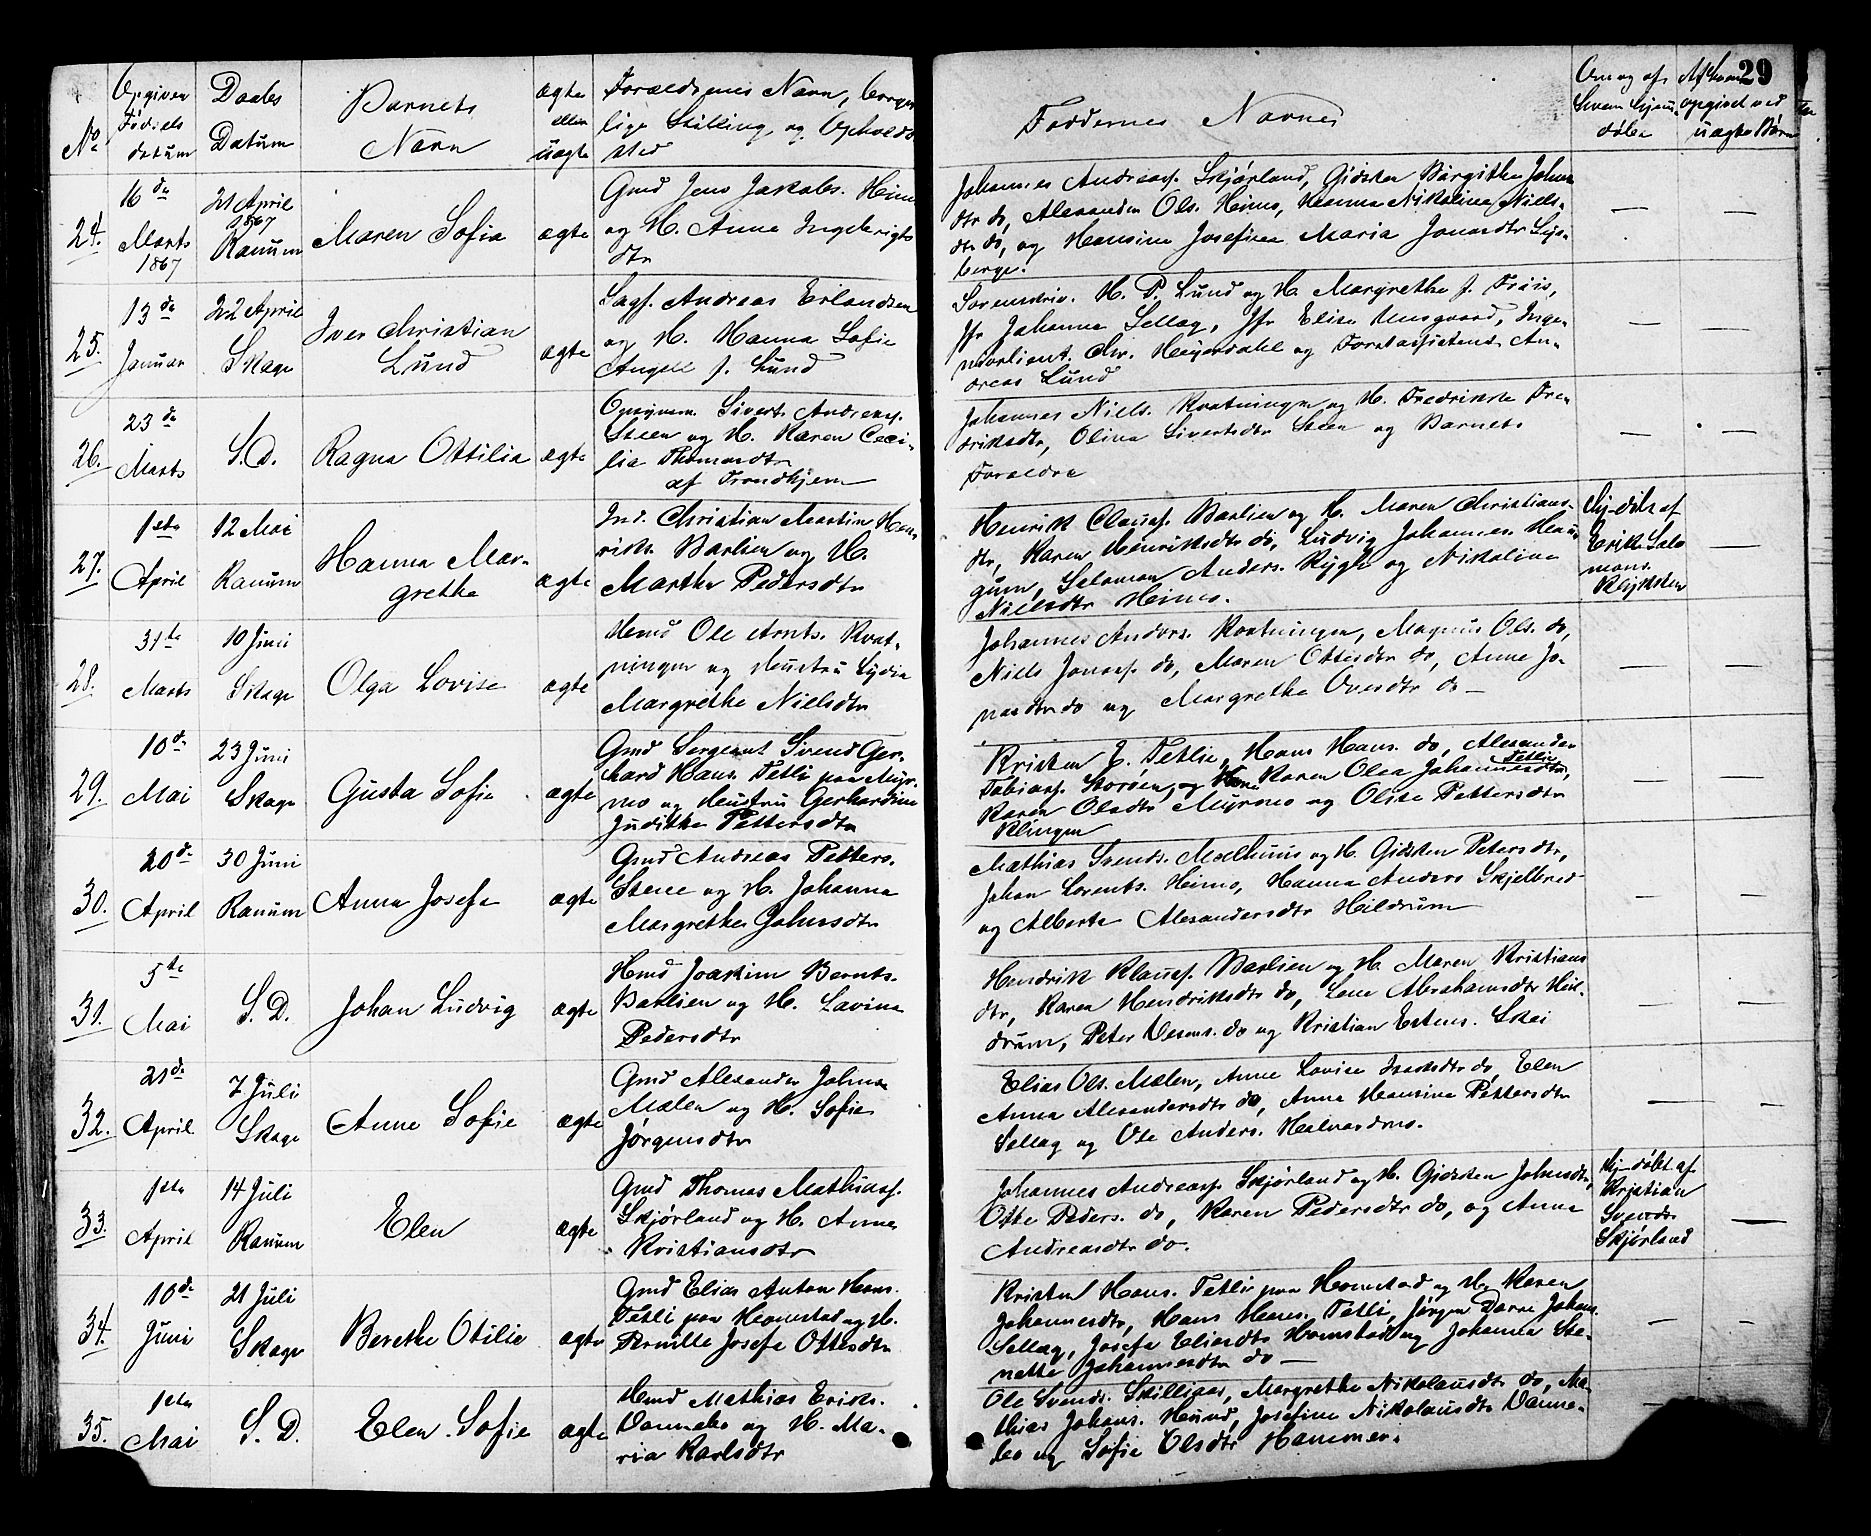 29
No
Opgiven
Fødsels
datum
Daabs
Datum
Barnets
Navn
ægte
eller
uægte
Forældrenes Navn, borger-
lige Stilling, og Opholds
sted
Faddernes Navne
Om og af
hvem hjem-
døbt
opgivet ved
uægte Børn
24.
16de
Marts
1867
21 April
1867
Ranum
Maren Sofia
ægte
Gmd Jens Jakobs. Heimo
og H. Anna Ingebrigts
dtr
Johannes Andreass. Skjørland, Gidsken Birgithe Johns
dtr do, Alexander Ols. Heimo, Hanna Nikolina Niels-
dtr do, og Hansine Josefine Maria Jonasdtr
berge.
25.
13de
Januar
22 April
Skage
Iver Christian
Lund
ægte
Sagf. Andreas Erlandsen
og H. Hanna Sofie
Angell f. Lund
Sorenskriv. H. P. Lund og H. Margrethe f. Friis,
Jfr Johanna Sellæg, Jfr Elise Unsgaard, Inge-
nieurlieut. Chr. Meyerdahl og Forstassistent An-
dreas Lund
26.
23de
Marts
S.D.
Ragna Ottilia
ægte
Opsynsm. Sivert Andreass.
Steen og H. Karen Ceci-
lia Thomasdtr
af Trondhjem
Johannes Niels. Kvatningen og H. Fredrikke Fre-
driksdtr, Olina Sivertsdtr Steen og Barnets
Forældre
27.
1ste
April
12 Mai
Ranum
Hanna Mar-
grethe
ægte
Ind. Christian Martin Hen-
riks. Barlien og H.
Martha Pedersdtr
Henrik Clauss. Barlien og H. Maren Christians-
dtr, Karen Henriksdtr do, Ludvig Johannes. Hau-
gum, Salomon Anders. Rygh og Nikoline
Nielsdtr Heimo.
Hj-døbt af
Erik Salo
mons.
28.
31te
Marts
10 Juni
Skage
Olga Lovise
ægte
Hmd Ole Arnts. Kvat-
ningen og Hustru Lydia
Margrethe Nielsdtr
Johannes Anders. Kvatningen, Magnus Ols. do,
Niels Jonass. do, Maren Ottesdtr do, Anne Jo-
nasdtr do og Margrethe Ovesdtr do
29.
10de
Mai
23 Juni
Skage
Gusta Sofie
ægte
Gmd Sergeant Svend Ger-
hard Hans. Tetli paa Myr-
mo og Hustru Gerhardine
Judithe Pettersdtr
Kristen J. Tetlie, Hans Hans. do, Alexander
Tobiass. Storøen, og Karen Olea Johannesdtr Tetlie,
Karen Olsdtr Myrmo og Olise Pettersdtr
Klingen
30.
20de
April
30 Juni
Ranum
Anna Josefa
ægte
Gmd Andreas Petters.
Steene og H. Johanna
Margrethe Johnsdtr
Mathias Svends. Moelhuus og H. Gidsken Petersdtr,
Johan Lorents. Heimo, Hanna Anders Skjelbred
og Alberte Alexandersdtr Hildrum
31.
5te
Mai
S. D.
Johan Ludvig
ægte
Hmd Joakim Bernts.
Barlien og H. Lavina
Pedersdtr
Hendrik Klauss. Barlien og H. Maren Kristians
dtr, Karen Hendriksdtr do, Lene Abrahamsdtr Hil-
drum, Peter do og Kristian Estens. Skei
32.
21de
April
7 Juli
Skage
Anne Sofie
ægte
Gmd Alexander Johns.
Mælen og H. Sofie
Jørgensdtr
Elias Ols. Mælen, Anne Lovise Isaksdtr do, Elen
Anna Alexandersdtr do, Anna Hansine Pettersdtr
Sellæg og Ole Anders. Halvardmo.
33.
1ste
April
14 Juli
Ranum
Elen
ægte
Gmd Thomas Mathiass.
Skjørland og H. Anne
Kristiansdtr
Johannes Andreass. Skjørland og H. Gidsken Johnsdtr,
Otte Peders. do, Karen Pedersdtr do, og Anna
Andreasdtr do.
Hj-døbt af
Kristian
Svends
Skjørland
34.
10de
Juni
21 Juli
Skage
Berethe Otilie
ægte
Gmd Elias Anton Hans.
Tetli paa Homstad og H.
Pernille Josefa Ottesdtr
Kristen Hans. Tetli paa Homstad og H. Karen
Johannesdtr, Hans Hans. Tetli, Jørgen Dorne Johans.
Sellæg, Josefa Eliasdtr Homstad og Johanna Ste-
nette Johannesdtr do
35.
1ste
Mai
S. D.
Elen Sofie
ægte
Hmd Mathias Eriks.
Vannebo og H. Ma-
ria Karlsdtr
Ole Svends. Skilliaas, Margrethe Nikolausdtr do, Ma-
thias Johans. Hund, Josefine Nikolausdtr Vanne-
bo og Sofie Olsdtr Hammer.